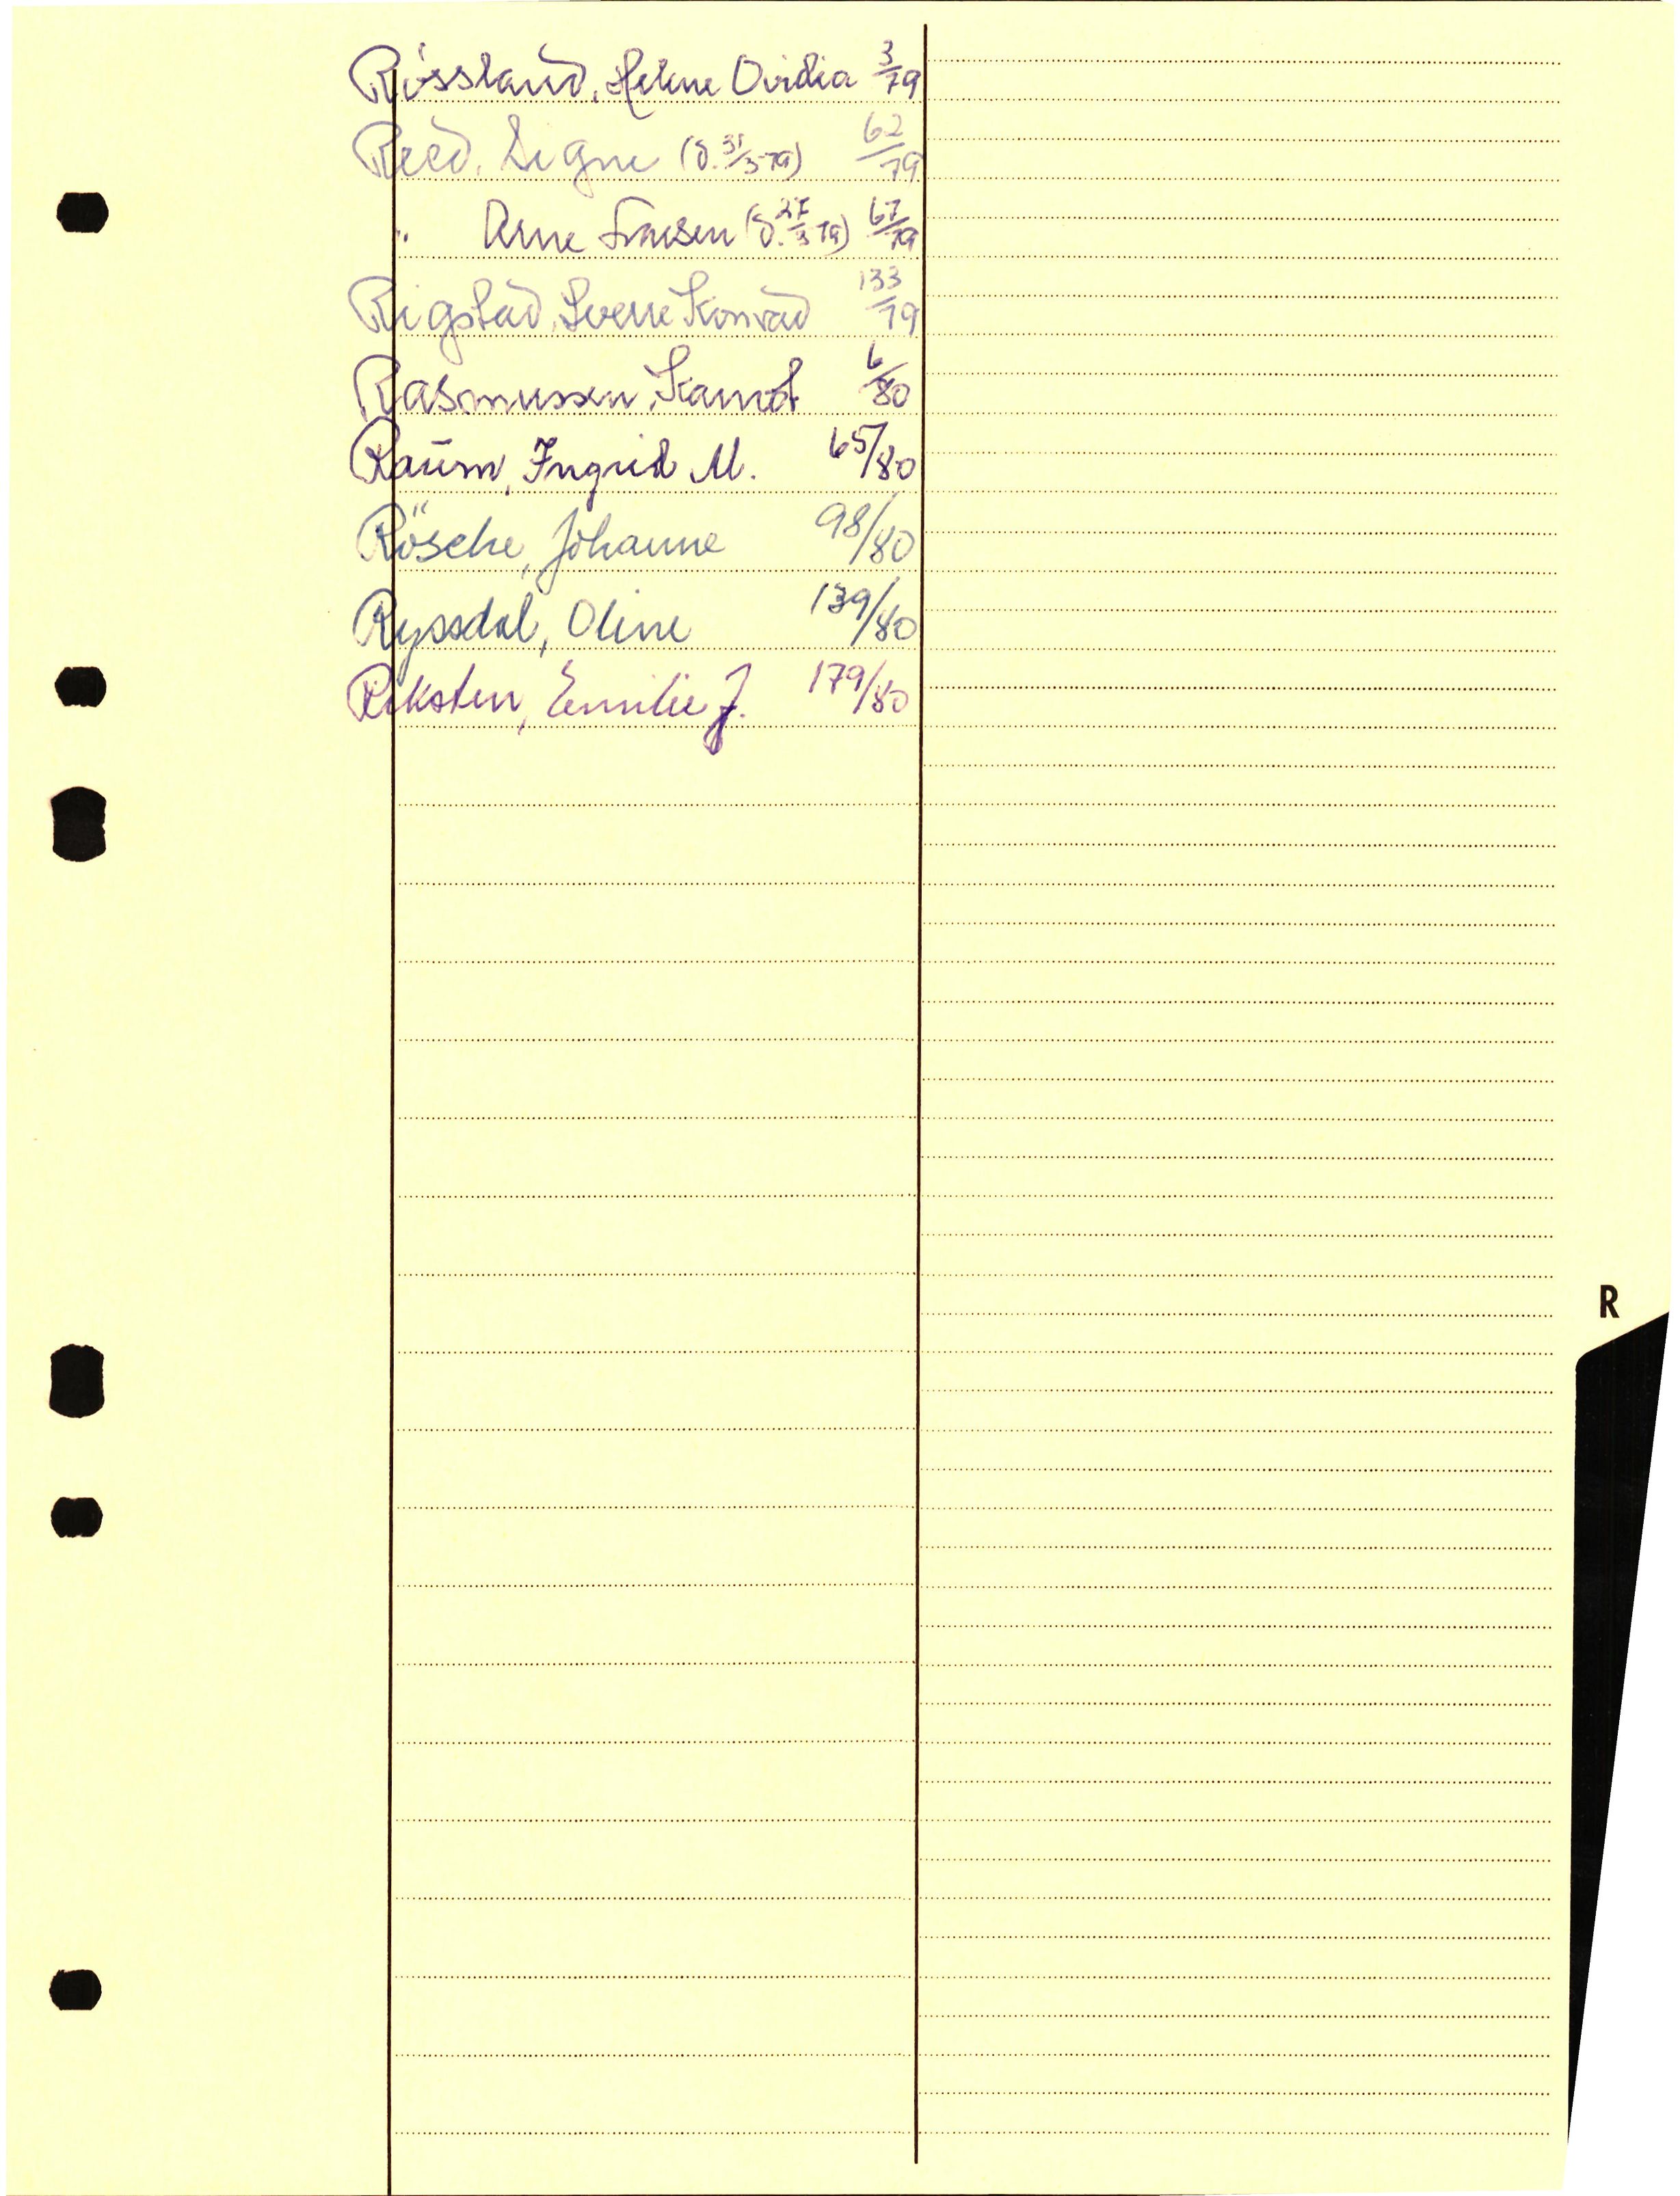 Røssland, Helene Ovidia 3/79
Reed, Signe (d. 31/3-79) 62/79
" Arne Larsen (d. 27/3-79) 67/79
Rigstad, Sverre Konrad 133/79
Rasmussen, 6/80
Raum, Ingrid M. 65/80
Rösche, Johanne 98/80
Ryssdal, Oline 139/80
Riksten, Emilie J. 179/80
R